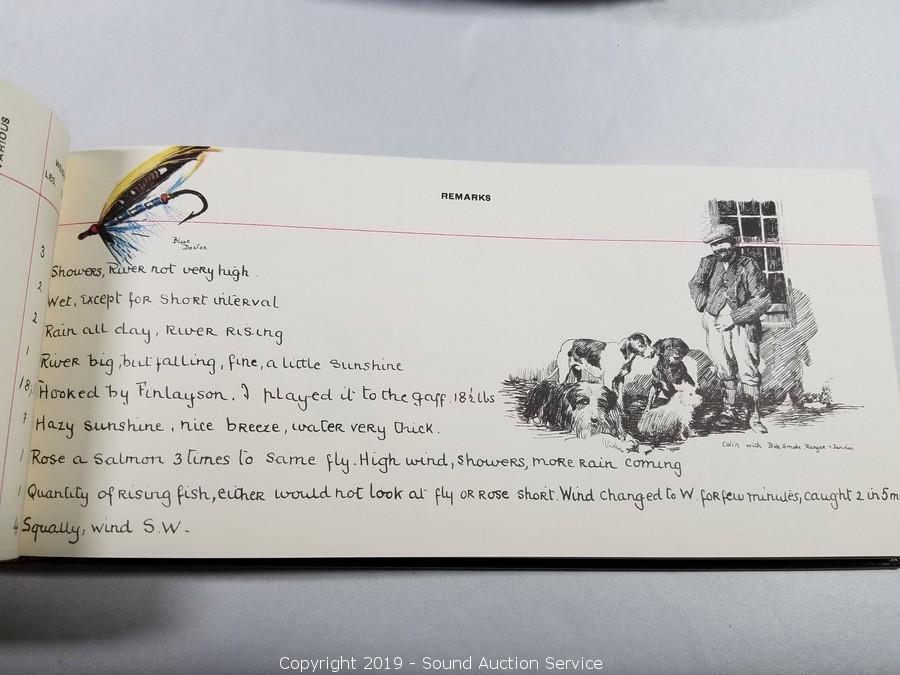 VARIOUS
LBS.
REMARKS
Blue Doctor
3 Showers, River not very high.
2 Wet, except for short interval
2 Rain all day, River rising
1 River big, but falling, fine, a little sunshine
18½ Hooked by Finlayson. I played it to the gaff. 18½ lbs
7 Hazy sunshine, nice breeze, water very thick.
1 Rose a salmon 3 times to same fly. High wind, showers, more rain coming
1 Quantity of rising fish, either would not look at fly or rose short. Wind changed to W. for few minutes, caught 2 in 5 m
4 Squally, wind S.W-
Colin with Bob Smoke Ranger
Copyright 2019 - Sound Auction Service